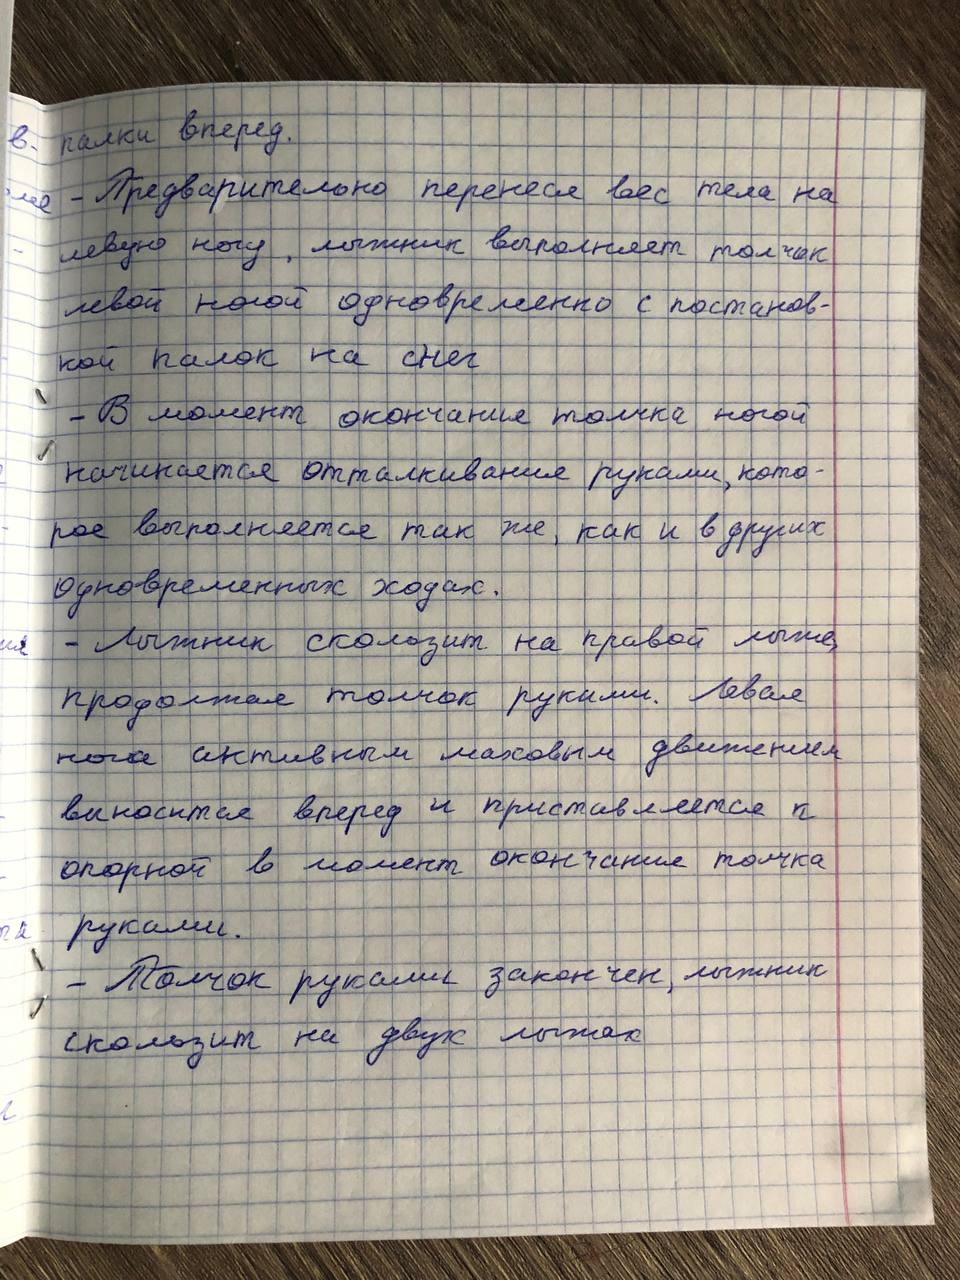 палки вперед.
- Предварительно перенеся вес тела на
левую ногу, лыжник выполняет толчок
левой ногой одновременно с постанов-
кой палок на снег
- В момент окончания толчка ногой
начинается отталкивание руками, кото-
рое выполняется так же, как и в других
одновременных ходах.
- Лыжник скользит на правой лыже,
продолжая толчок руками. Левая
нога активным маховым движением
выносится вперед и приставляется к
опорной в момент окончания толчка
руками.
- Толчок руками закончен, лыжник
скользит на двух лыжах